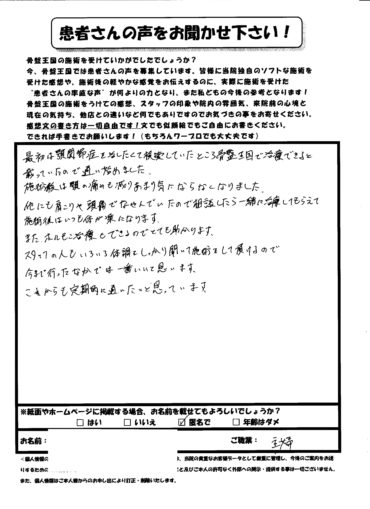 患者さんの声をお聞かせ下さい！
骨盤王国の施術を受けていかがでしたでしょうか？
今、骨盤王国では患者さんの声を募集しています。皆様に当院独自のソフトな施術を
受けた感想や、施術後の軽やかな感覚をお伝えするのに、実際に施術を受けた
“患者さんの率直な声”が何よりの力となり、また私どもの今後の参考となります！
骨盤王国の施術をうけての感想、スタッフの印象や院内の雰囲気、来院前の心境と
現在の気持ち、他店との違いなど何でもありですのでお気づきの事をお寄せください。
感想文の書き方は一切自由です！文でも似顔絵でもご自由にお書きください。
できれば手書きでお願いします！（もちろんワープロでも大丈夫です）
最初は顎関節症を治したくて検索していたところ骨盤王国で治療できると
載っていたので通い始めました。
施術後は顎の痛みも減りあまり気にならなくなりました。
他にも肩こりや頭痛でなやんでいたので相談したら一緒に治療してもらえて
施術後はいつも体が楽になります。
また、ホルモン治療もできるのでとても助かります。
スタッフの人もいろいろ体調としっかり聞いて施術をして頂けるので
今まで行ったなかでは一番いいと思います。
これからも定期的に通いたいと思っています
※紙面やホームページに掲載する場合、お名前を載せてもよろしいでしょうか？
□ はい □ いいえ ☑ 匿名で □ 年齢はダメ
お名前： ご職業： 主婦
＜個人情報の 、当院の貴重なお客様データとして厳重に管理し、今後のご案内をお送
りするため と及びご本人の許可なく外部への開示・提供する事は一切ございません。
また、個人情報はご本人様からのお申し出により訂正・削除いたします。